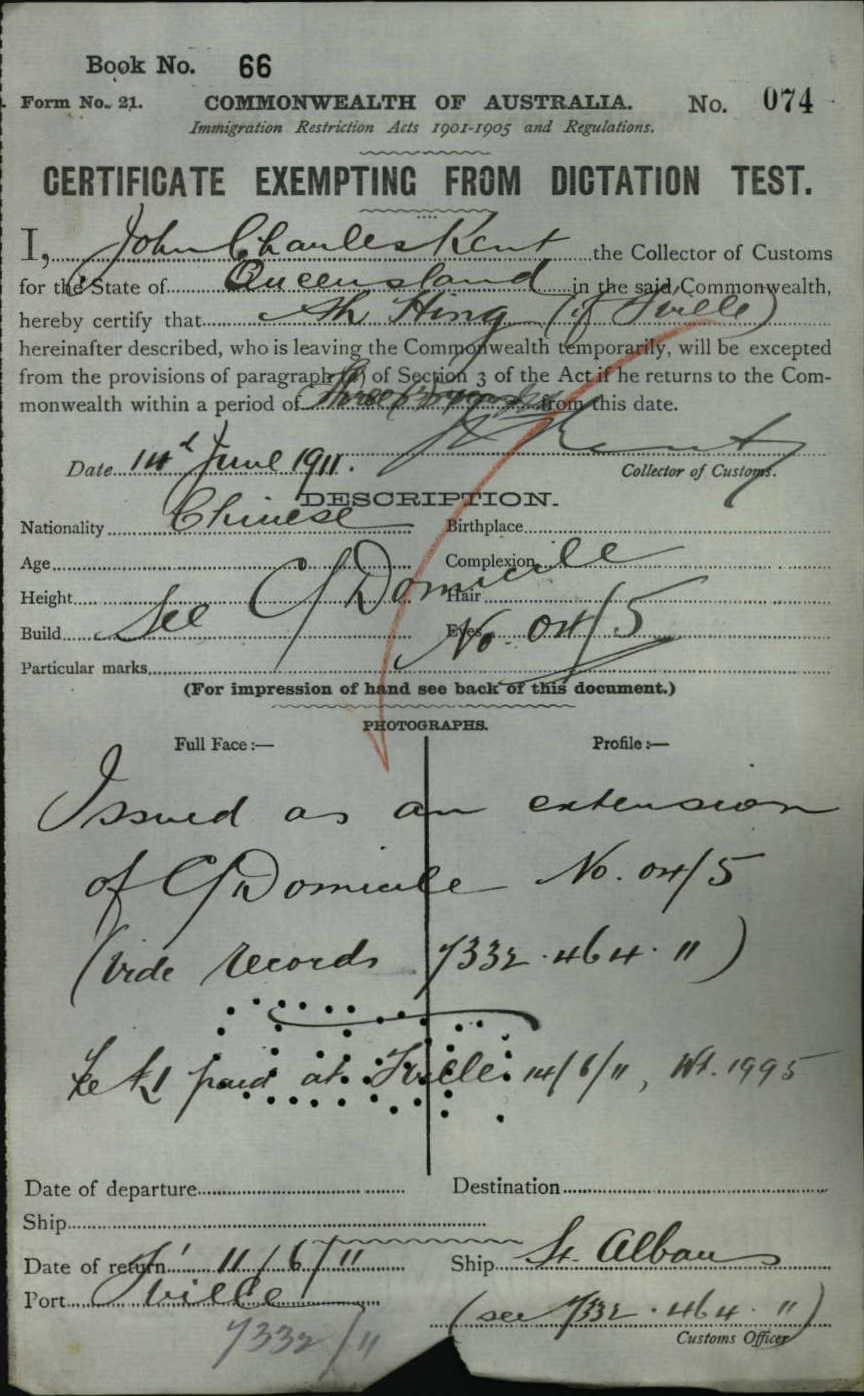 Book No. 66
Form No. 21. COMMONWEALTH OF AUSTRALIA. No. 074
Immigration Restriction Acts 1901-1905 and Regulations.
CERTIFICATE EXEMPTING FROM DICTATION TEST.
I, John Charles Kent the Collector of Customs
for the State of Queensland in the said Commonwealth,
hereby certify that Ah Hing (of T'ville)
hereinafter described, who is leaving the Commonwealth temporarily, will be excepted
from the provisions of paragraph (a) of Section 3 of the Act if he returns to the Com-
monwealth within a period of from this date.
J C Kent
Date 14th June 1911. Collector of Customs.
DESCRIPTION.
Nationality Chinese Birthplace
Age Complexion
Height Hair
See C/Domicile
Build Eyes
No. 04/5
Particular marks
(For impression of hand see back of this document.)
PHOTOGRAPHS.
Full Face :— Profile :—
Issued as an extension
of C/Domicile No. 04/5
(Vide records 7332.464.11)
Fee £1 paid at T'ville 14/6/11, No. 1995
Date of departure Destination
Ship
Date of return 11/6/11 Ship St. Albans
Port T'ville
(see 7332.464.11)
7332/11 Customs Officer